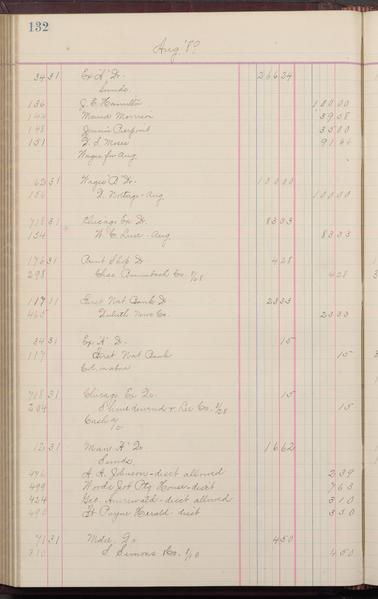 132
Aug '8?
34 31 Ex "A" Dr. 266 24
Sunds.
136 J. E. Hamilton 100 00
144 Maud Morrison 39 58
148 Jennie Pierpont 35 00
151 F. S. Morse 91 66
Wages for Aug.
62 31 Wages "A" Dr. 100 00
156 F. Nortage - Aug 100 00
718 31 Chicago Ex Dr. 83 33
154 W. C. Luse - Aug 83 33
176 31 Ship Dr 4 28
298 Chas Co. 8/28 4 28
117 31 First Nat Bank Dr 23 33
465 Duluth News Co. 23 33
34 31 Ex "A" Dr. 15
117 First Nat Bank 15
Col. on above
718 31 Chicago Ex Dr. 15
204 & Lee Co. 8/28 15
Cash
12 31 Man "A" Dr 16 62
Sunds.
476 A. A. Johnson - disct allowed 2 39
499 Woods Jot Ptg House - disct 7 63
424 Geo. - disct allowed 3 10
490 Ft Payne Herald - disct 3 50
71 31 Mdse Dr 4 50
310 Simons Co. 4 50